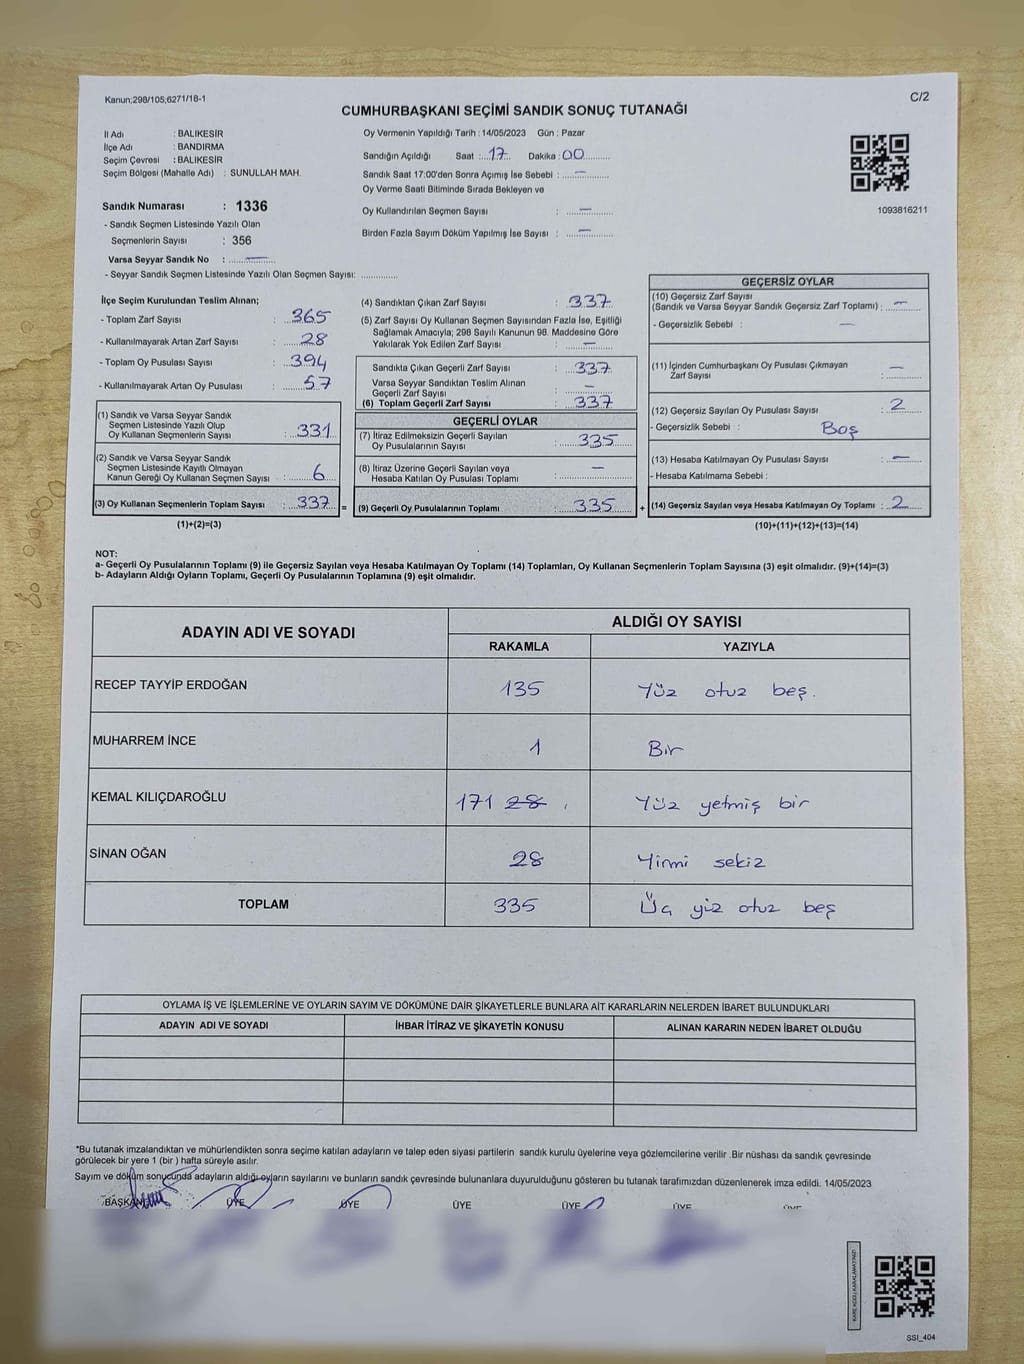 Kanun;298/105;6271/18-1
C/2
CUMHURBAŞKANI SEÇİMİ SANDIK SONUÇ TUTANAĞI
İl Adı : BALIKESİR
İlçe Adı : BANDIRMA
Seçim Çevresi : BALIKESİR
Seçim Bölgesi (Mahalle Adı) : SUNULLAH MAH.
Oy Vermenin Yapıldığı Tarih : 14/05/2023 Gün : Pazar
Sandığın Açıldığı Saat : 17 Dakika : 00
Sandık Saat 17:00'den Sonra Açımış İse Sebebi : —
Oy Verme Saati Bitiminde Sırada Bekleyen ve
Oy Kullandırılan Seçmen Sayısı : —
Birden Fazla Sayım Döküm Yapılmış İse Sayısı : —
1093816211
Sandık Numarası : 1336
- Sandık Seçmen Listesinde Yazılı Olan
Seçmenlerin Sayısı : 356
Varsa Seyyar Sandık No : —
- Seyyar Sandık Seçmen Listesinde Yazılı Olan Seçmen Sayısı: ..............
İlçe Seçim Kurulundan Teslim Alınan;
- Toplam Zarf Sayısı : 365
- Kullanılmayarak Artan Zarf Sayısı : 28
- Toplam Oy Pusulası Sayısı : 394
- Kullanılmayarak Artan Oy Pusulası : 57
(1) Sandık ve Varsa Seyyar Sandık
Seçmen Listesinde Yazılı Olup
Oy Kullanan Seçmenlerin Sayısı : 331
(2) Sandık ve Varsa Seyyar Sandık
Seçmen Listesinde Kayıtlı Olmayan
Kanun Gereği Oy Kullanan Seçmen Sayısı : 6
(3) Oy Kullanan Seçmenlerin Toplam Sayısı : 337 =
(1)+(2)=(3)
(4) Sandıktan Çıkan Zarf Sayısı : 337
(5) Zarf Sayısı Oy Kullanan Seçmen Sayısından Fazla İse, Eşitliği
Sağlamak Amacıyla; 298 Sayılı Kanunun 98. Maddesine Göre
Yakılarak Yok Edilen Zarf Sayısı : —
Sandıkta Çıkan Geçerli Zarf Sayısı : 337
Varsa Seyyar Sandıktan Teslim Alınan
Geçerli Zarf Sayısı : —
(6) Toplam Geçerli Zarf Sayısı : 337
GEÇERLİ OYLAR
(7) İtiraz Edilmeksizin Geçerli Sayılan
Oy Pusulalarının Sayısı : 335
(8) İtiraz Üzerine Geçerli Sayılan veya
Hesaba Katılan Oy Pusulası Toplamı : —
(9) Geçerli Oy Pusulalarının Toplamı : 335 +
GEÇERSİZ OYLAR
(10) Geçersiz Zarf Sayısı
(Sandık ve Varsa Seyyar Sandık Geçersiz Zarf Toplamı) : —
- Geçersizlik Sebebi : —
(11) İçinden Cumhurbaşkanı Oy Pusulası Çıkmayan
Zarf Sayısı : —
(12) Geçersiz Sayılan Oy Pusulası Sayısı : 2
- Geçersizlik Sebebi : Boş
(13) Hesaba Katılmayan Oy Pusulası Sayısı : —
- Hesaba Katılmama Sebebi :
(14) Geçersiz Sayılan veya Hesaba Katılmayan Oy Toplamı : 2
(10)+(11)+(12)+(13)=(14)
NOT:
a- Geçerli Oy Pusulalarının Toplamı (9) ile Geçersiz Sayılan veya Hesaba Katılmayan Oy Toplamı (14) Toplamları, Oy Kullanan Seçmenlerin Toplam Sayısına (3) eşit olmalıdır. (9)+(14)=(3)
b- Adayların Aldığı Oyların Toplamı, Geçerli Oy Pusulalarının Toplamına (9) eşit olmalıdır.
ADAYIN ADI VE SOYADI
ALDIĞI OY SAYISI
RAKAMLA YAZIYLA
RECEP TAYYİP ERDOĞAN 135 Yüz otuz beş.
MUHARREM İNCE 1 Bir
KEMAL KILIÇDAROĞLU 171 28 Yüz yetmiş bir
SİNAN OĞAN 28 Yirmi sekiz
TOPLAM 335 Üç yiz otuz beş
OYLAMA İŞ VE İŞLEMLERİNE VE OYLARIN SAYIM VE DÖKÜMÜNE DAİR ŞİKAYETLERLE BUNLARA AİT KARARLARIN NELERDEN İBARET BULUNDUKLARI
ADAYIN ADI VE SOYADI İHBAR İTİRAZ VE ŞİKAYETİN KONUSU ALINAN KARARIN NEDEN İBARET OLDUĞU
*Bu tutanak imzalandıktan ve mühürlendikten sonra seçime katılan adayların ve talep eden siyasi partilerin sandık kurulu üyelerine veya gözlemcilerine verilir .Bir nüshası da sandık çevresinde
görülecek bir yere 1 (bir ) hafta süreyle asılır.
Sayım ve döküm sonucunda adayların aldığı oyların sayılarını ve bunların sandık çevresinde bulunanlara duyurulduğunu gösteren bu tutanak tarafımızdan düzenlenerek imza edildi. 14/05/2023
BAŞKAN ÜYE ÜYE ÜYE ÜYE ÜYE ÜYE
SSI_404